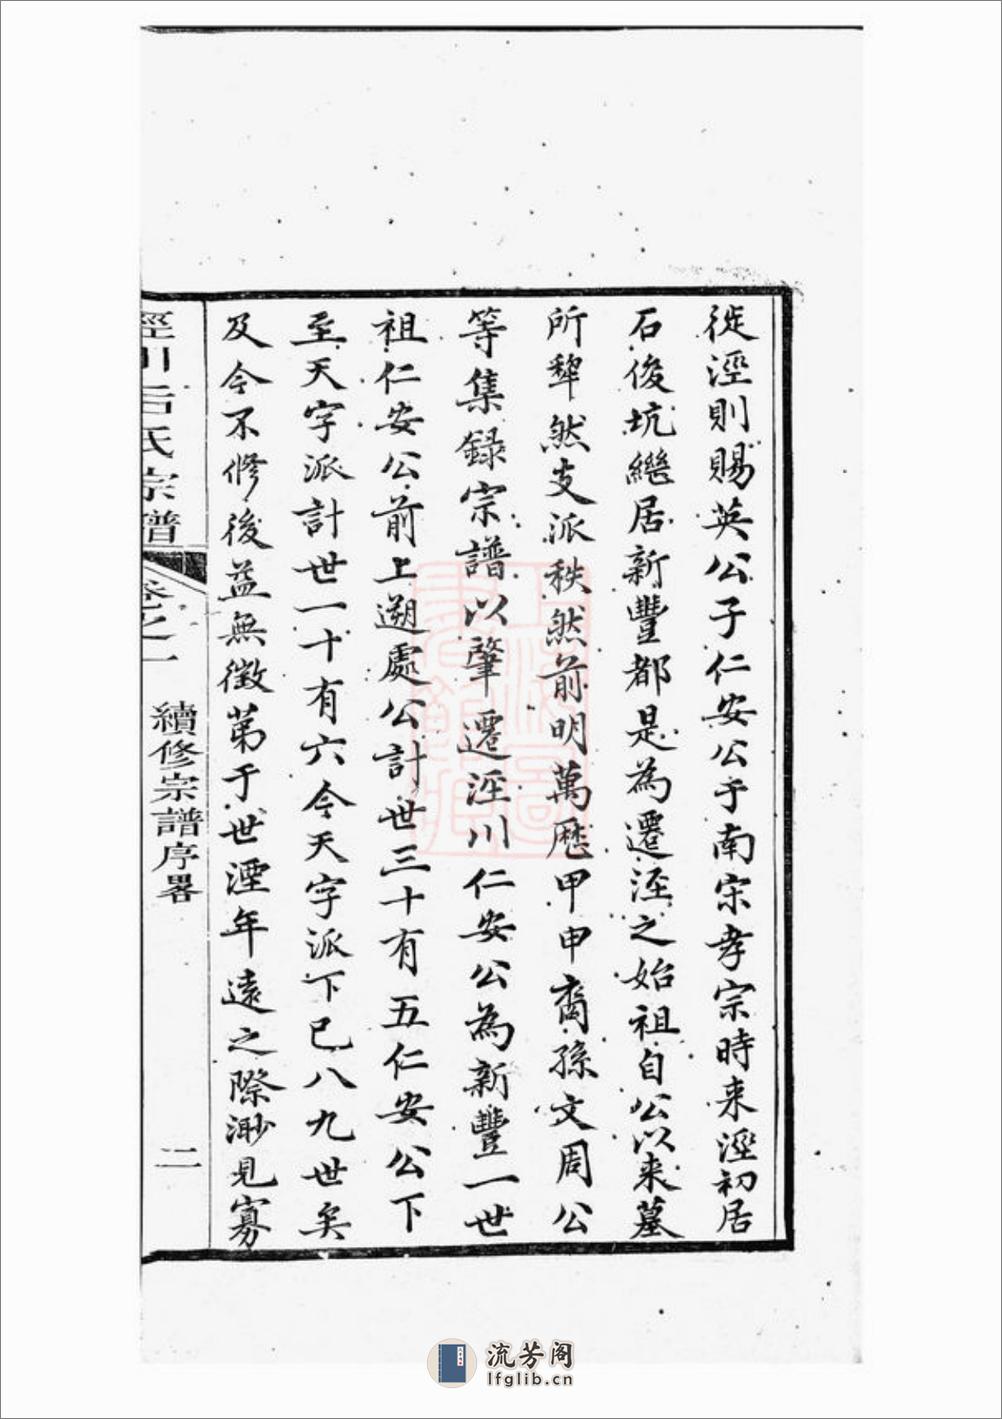 徙涇則賜英公子仁安公于南宋孝宗時来涇初居
石後坑繼居新豐都是為遷涇之始祖自公以来墓
所犂然支派秩然前明萬厯甲申裔孫文周公
等集録宗譜以肇遷涇川仁安公為新豐一世
祖仁安公前上遡處公計世三十有五仁安公下
至天字派計世一十有六今天字派下已八九世矣
及今不修後益無徵第于世湮年遠之際渺見寡
涇川吕氏宗譜
卷之一
續修宗譜序畧
二
流芳阁
lfglib.cn